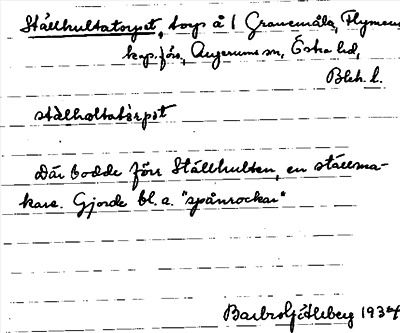 Ställhultatorpet, torp å 1 Granemåla, Flymens
kap.förs., Augerums sn, Östra hd,
Blek. l.
stälhòltatòrpət
Där bodde förr Ställhulten, en ställma-
kare. Gjorde bl. a. "spånrockar"
Barbro 1934